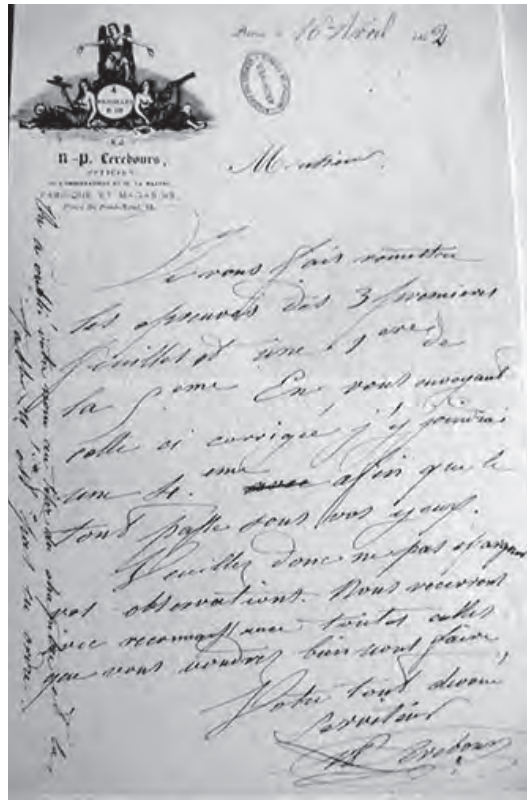 Paris le 16 Avril 1842
4
MEDAILLES
N-P. Lerebours,
OPTICIEN
DE L'OBSERVATOIRE ET DE LA MARINE,
FABRIQUE ET MAGASINS,
Place du Pont-Neuf, 13.
Monsieur,
Je vous fais remettre
les épreuves des 3 premieres
feuilles et une 1ere de
la 5eme En vous envoyant
celle ci corrigée j'y joindrai
une 4.eme afin que le
tout passe sous vos yeux.
Veuillez donc ne pas épargner
vos observations. Nous recevrons
avec reconnaissance toutes celles
que vous voudrez bien nous faire
Votre tout dévoué
serviteur
NP Lerebours
On a oublié votre nom au